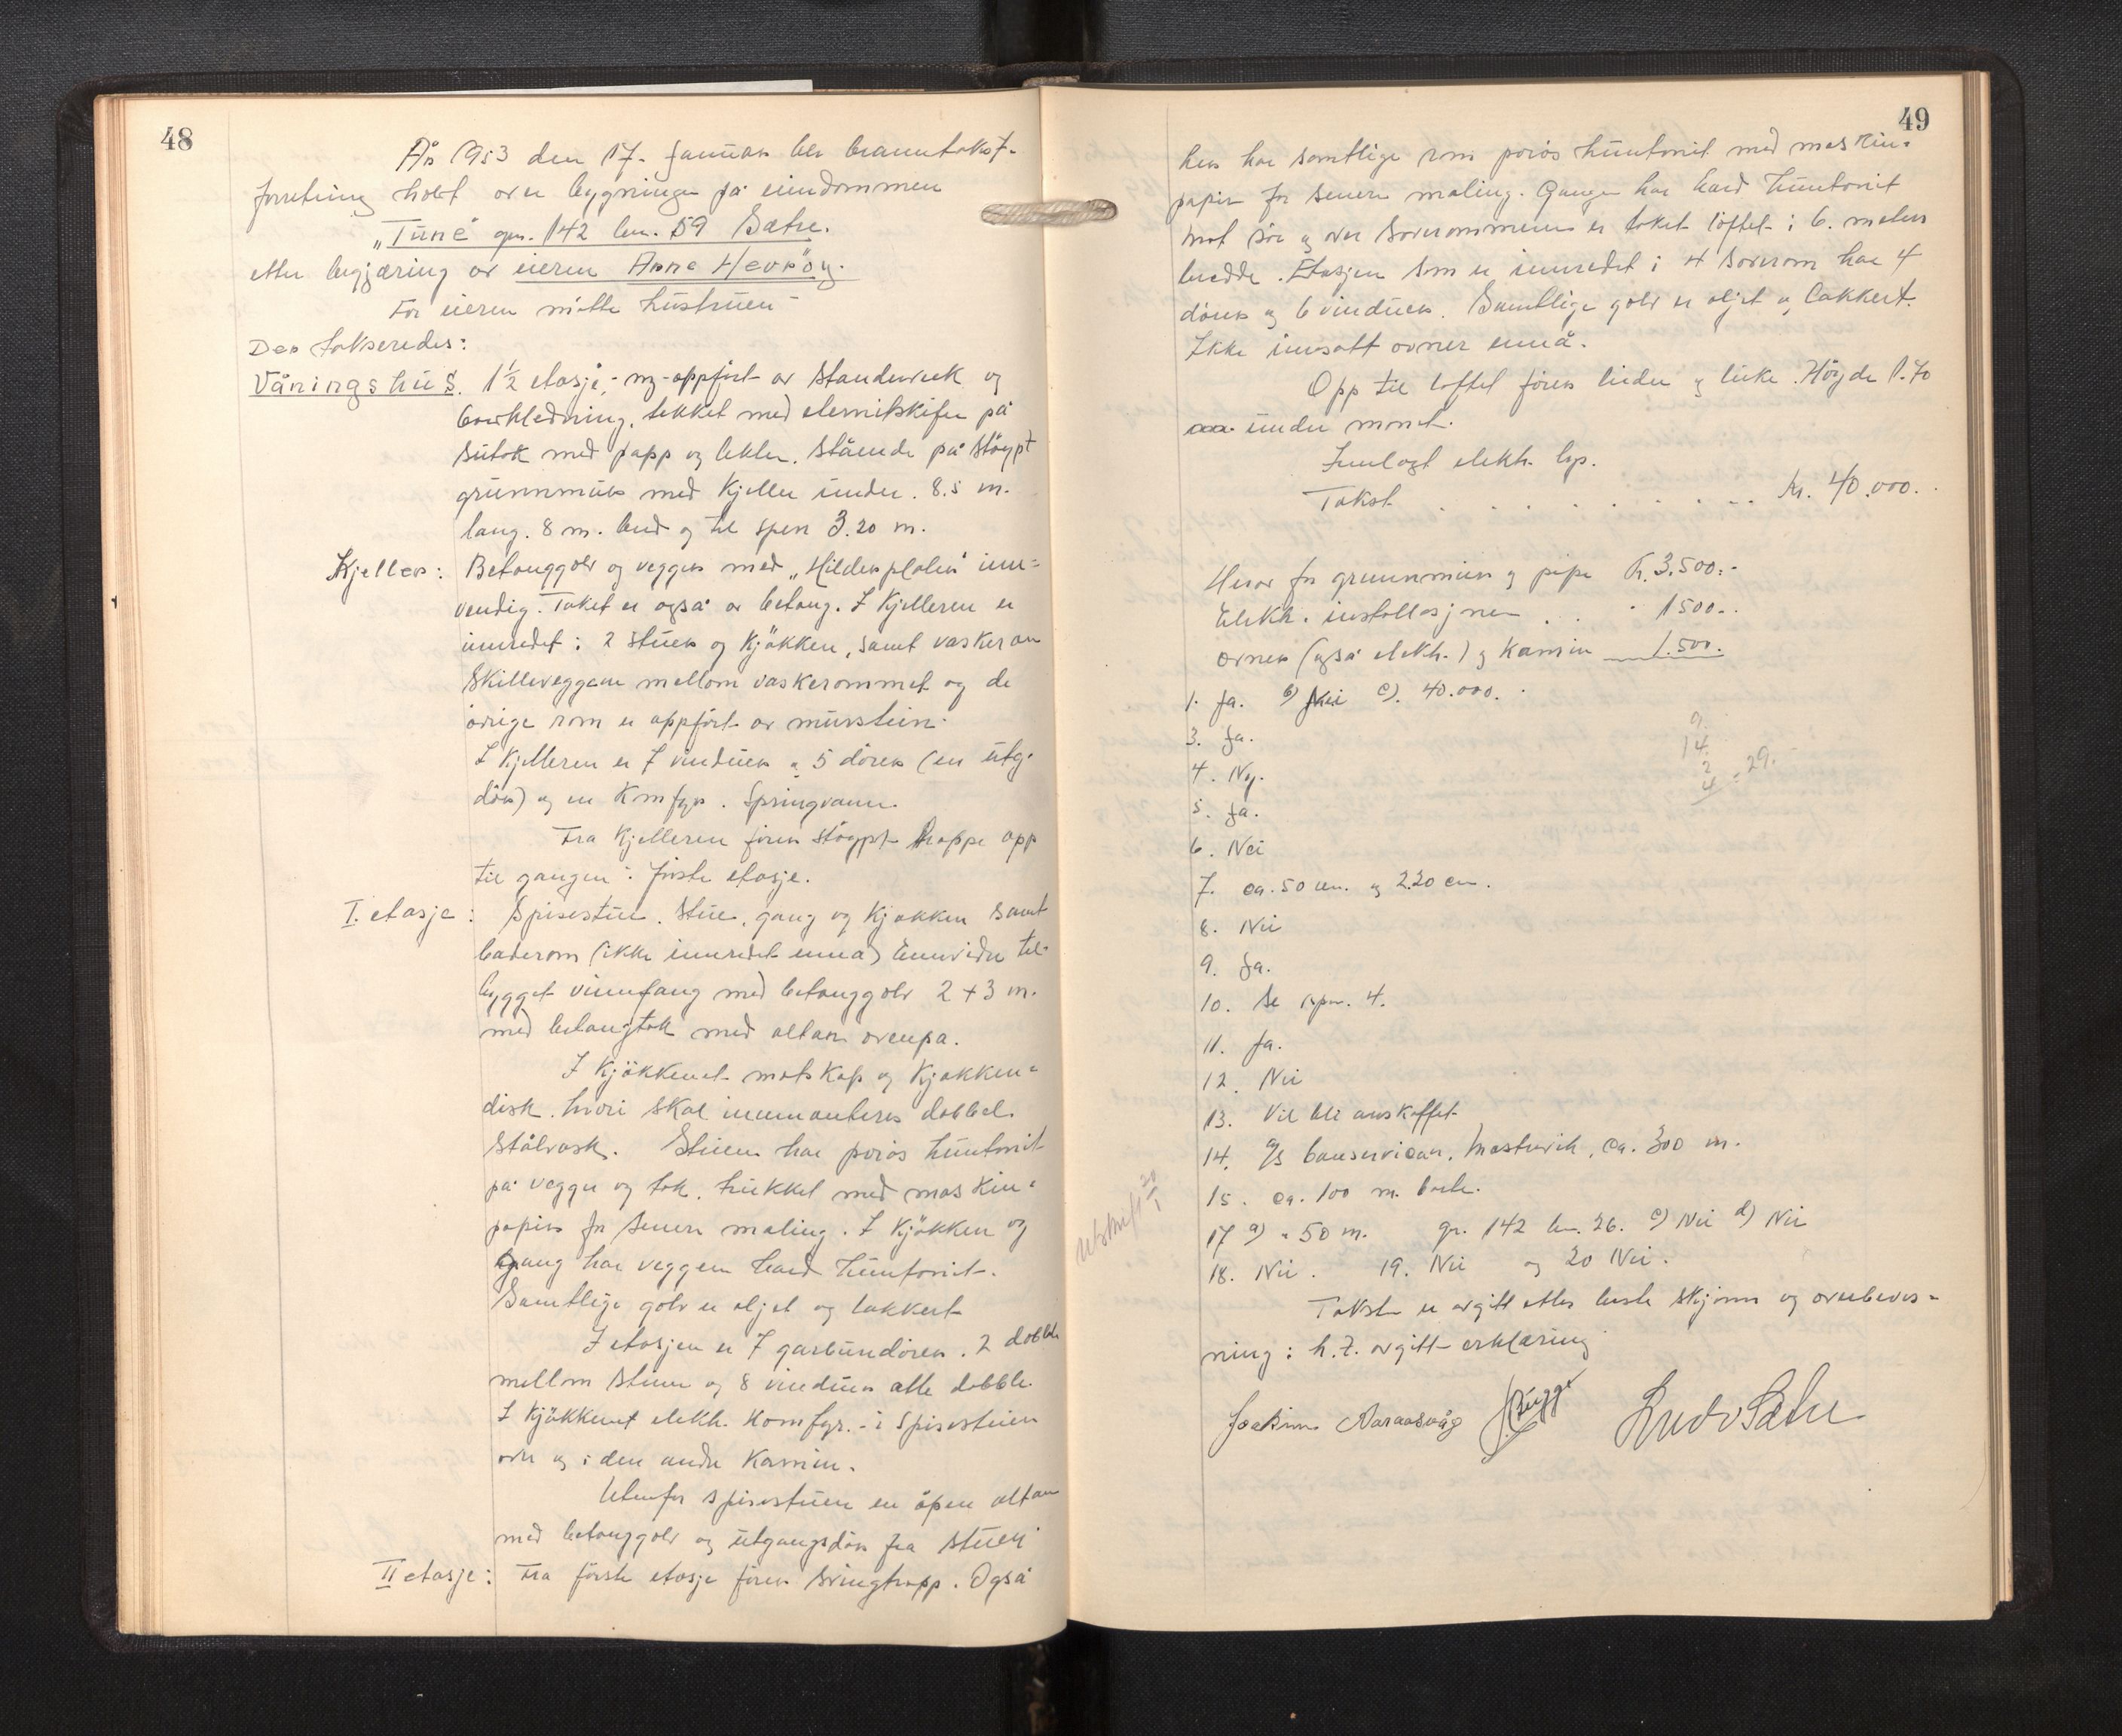 48
År 1953 den 17. januar ble branntakst-
forretning holdt over bygningen på eiendommen
"Tune" gnr. 142 bnr. 59 Sætre.
etter begjæring av eieren Anne Hevrøy.
For eieren møtte hustruen -
Der takseredes:
Våningshus. 1½ etasje, - ny-oppført av standerverk og
bordkledning, tekket med eternitskifer på
sutak med papp og lekter. Stående på støypt
grunnmur med kjeller under. 8.5 m.
lang. 8 m. bred og til sperr 3.20 m.
Kjeller: Betonggolv og vegger med "Hildenplater" inn-
vendig. Taket er også av betong. I kjelleren er
innredet: 2 stuer og kjøkken, samt vaskerom
Skilleveggene mellom vaskerommet og de
øvrige rom er oppført av murstein.
I kjelleren er 7 vinduer og 5 dører (en utg.
dør) og en komfyr. Springvann.
Fra kjelleren fører støypt trappe opp
til gangen i første etasje.
I. etasje: Spisestue. Stue, gang og kjøkken samt
baderom (ikke innredet ennå) Ennvidere til-
bygget vinnfang med betonggolv 2 + 3 m.
med betongtak med altan ovenpå.
I kjøkkenet matskap og kjøkken-
disk. hvori skal innmonteres dobbel
stålvask. Stuene har porøs huntonit
på vegger og tak, trukket med maskin-
papir for senere maling. I kjøkken og
gang har veggene hard huntonit.
Samtlige golv er oljet og lakkert
I etasjen er 7 garbundører. 2 doble
mellom stuene og 8 vinduer alle doble.
I kjøkkenet elektr. komfyr. - i spisestuen
ovn og i den andre kamin.
Utenfor spisestuen en åpen altan
med betonggolv og utgangsdør fra stuen
II etasje: Fra første etasje fører svingtrapp. Også
49
her har samtlige rom porøs huntonit med maskin-
papir for senere maling. Gangen har hard huntonit
Mot sør og over soverommene er taket løftet i 6. meters
bredde. Etasjen som er innredet i 4 soverom har 4
dører og 6 vinduer. Samtlige golv er oljet og lakkert.
Ikke innsatt ovner ennå.
Opp til loftet fører leder og luke. Høyde 1.70
under mønet.
Innlagt elektr. lys.
Takst . . . . . . . . Kr. 40.000.
Herav for grunnmur og pipe Kr. 3.500.-
Elektr. installasjoner . . " 1500.-
ovner (også elektr.) og kamin 1.500.
1. Ja. b) Nei c). 40.000.
3. Ja.
4. Ny.
5. Ja.
6. Nei
7. ca. 50 cm. og 2.20 cm.
8. Nei
9. Ja.
10. Se spm. 4.
11. Ja.
12. Nei
13. Vil bli anskaffet
14. ca. 300 m.
15. ca. 100 m. bratt.
17 a) " 50 m. gr. 142 bn. 26. c) Nei d) Nei
18. Nei. 19. Nei og 20 Nei.
Taksten er avgitt etter beste skjønn og overbevis-
ning: h.t. avgitt erklæring
9.
14.
2
4 = 29.
Utskrift 20/1
Joakim